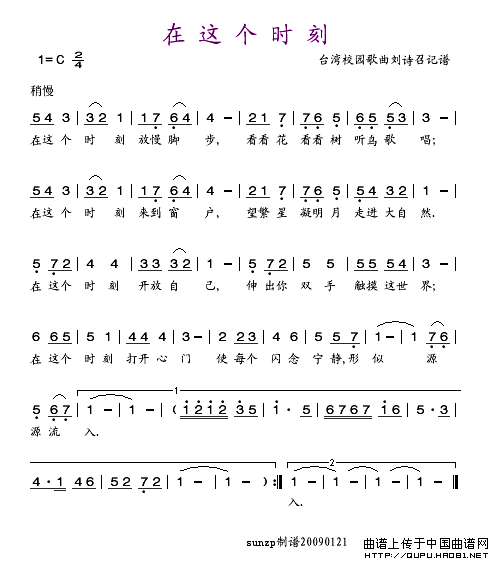 在这个时刻
1=C 2/4
台湾校园歌曲刘诗召记谱
稍慢
5 4 3 | 3 2 1 | 1 7 6 4 | 4 - | 2 1 7 | 7 6 5 | 6 5 5 3 | 3 - |
在这个 时 刻 放慢 脚 步, 看看 花 看看 树 听鸟 歌 唱;
5 4 3 | 3 2 1 | 1 7 6 4 | 4 - | 2 1 7 | 7 6 6 | 5 4 3 2 | 1 - |
在这个 时 刻 来到 窗 户, 望繁 星 凝明 月 走进 大自 然.
5 7 2 | 4 4 | 3 3 3 2 | 1 - | 5 7 2 | 5 5 | 5 5 5 4 | 3 - |
在 这个 时 刻 开放 自 己, 伸 出你 双 手 触摸 这世 界;
6 6 5 | 5 1 | 4 4 4 | 3 - | 2 2 3 | 4 6 | 5 5 7 | 1 - | 1 7 6 |
在 这个 时 刻 打开 心 门 使 每个 闪 念 宁 静,形 似 源
1
5 6 7 | 1 - | 1 - | ( 1 2 1 2 3 5 | 1 · 5 | 6 7 6 7 1 6 | 5 · 3 |
源 流 入.
2
4 · 1 | 4 6 | 5 2 7 2 | 1 - | 1 - ) :‖ 1 - | 1 - | 1 - ‖
入.
sunzp制谱20090121
曲谱上传于中国曲谱网
http://www.QUPU.NET.CN